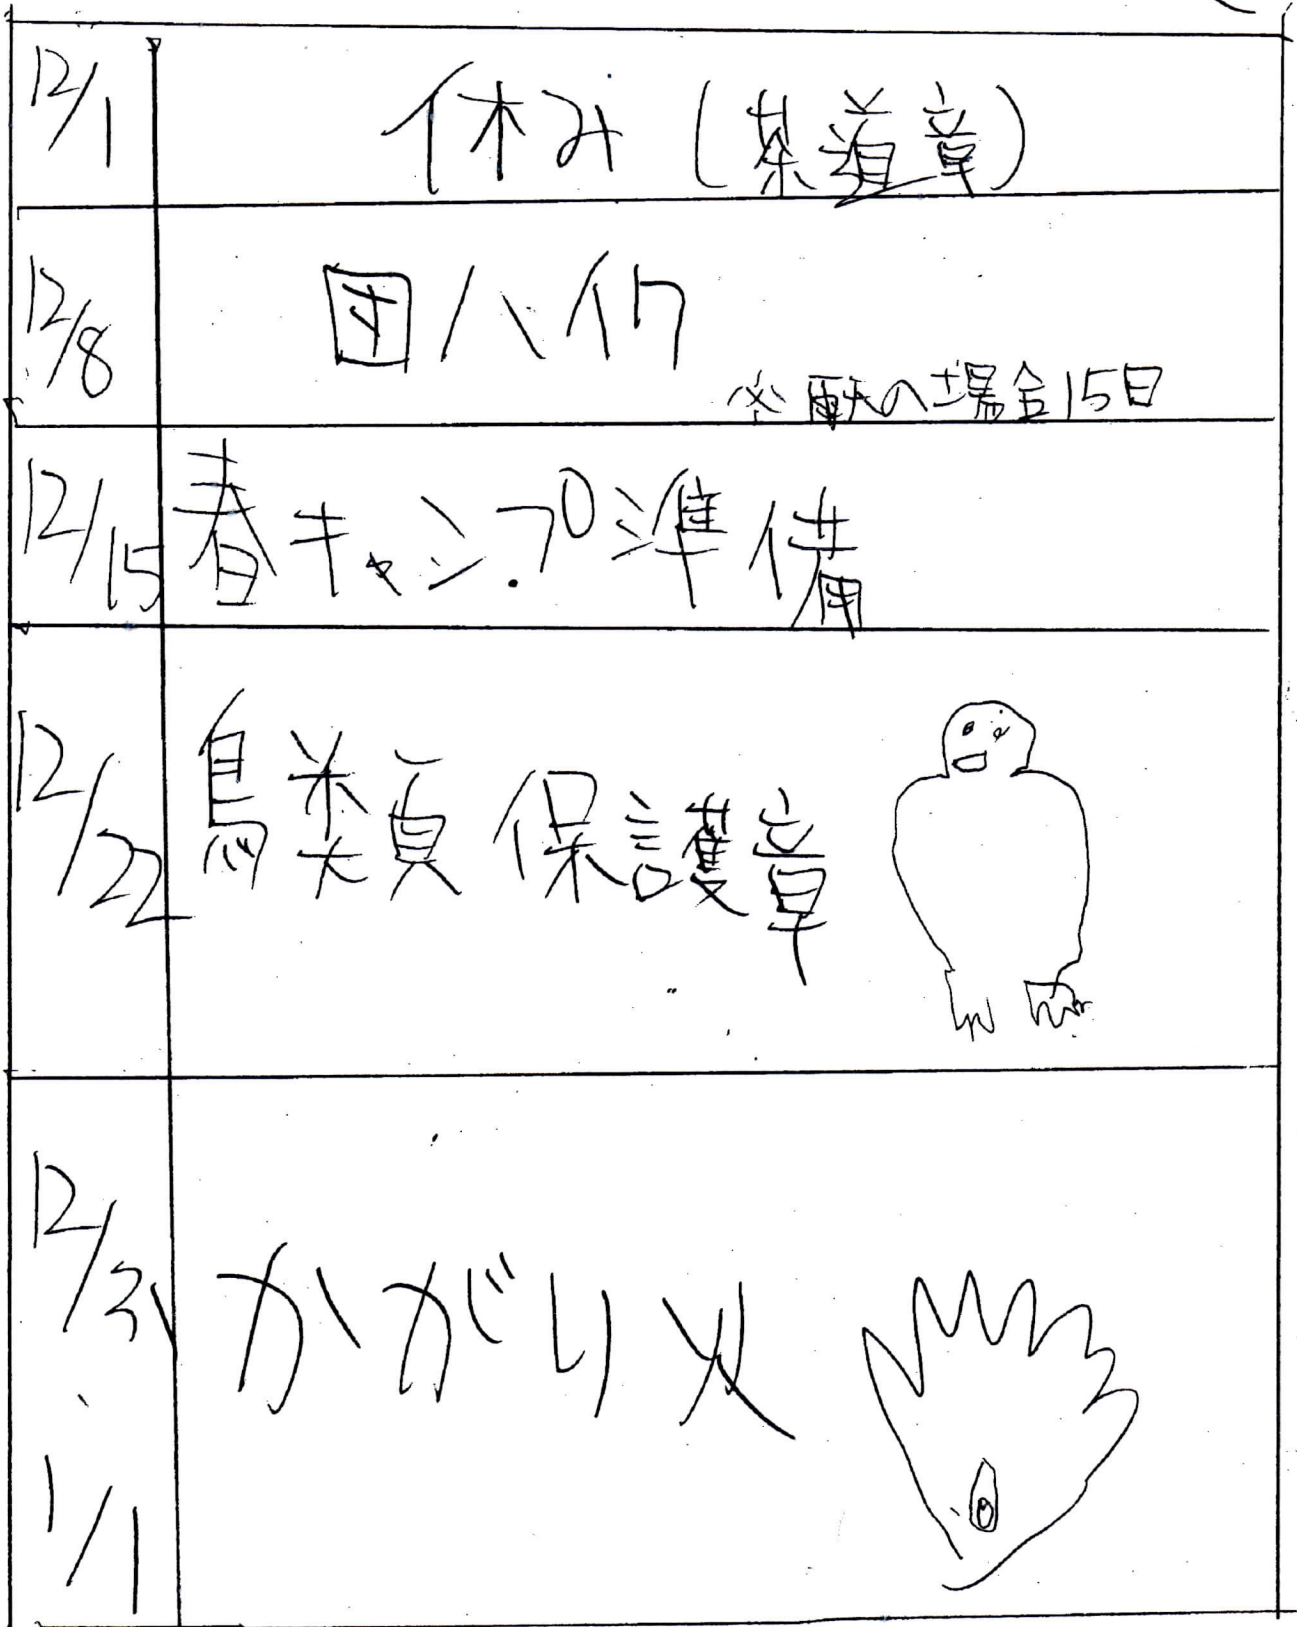 12/1 休み(茶道章)
12/8 団ハイク
※雨天の場合15日
12/15 春キャンプ準備
12/22 鳥類保護章
12/31 かがり火
、
1/1